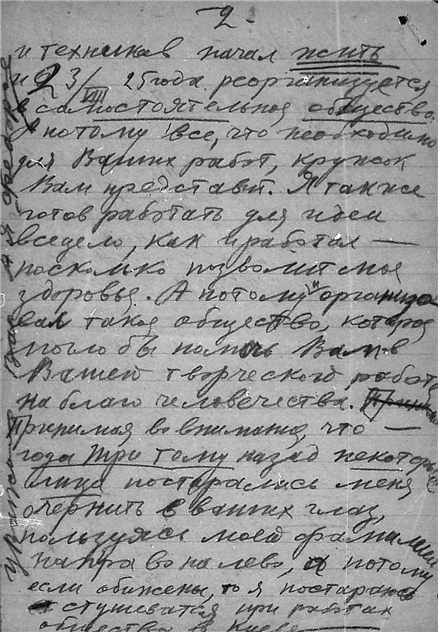 - 2 -
и техников начал жить
и 23/VII 25 года реорганизуется
в самостоятельное общество.
А потому все, что необходимо
для Ваших работ, кружок
Вам представит. Я также
готов работать для идеи
всецело, как и работал —
посколько позволит мое
здоровье. А потому и организо
вал такое общество, которое
могло бы помочь Вам в
Вашей творческой работе
на благо человечества.
Принимая во внимание, что —
года три тому назад некоторые
лица постарались меня
очернить в ваших глаз,
пользуясь моей фамилией
направо налево, а потому
если обижены, то я постараюсь
стушеваться при работах
общества в Киеве —